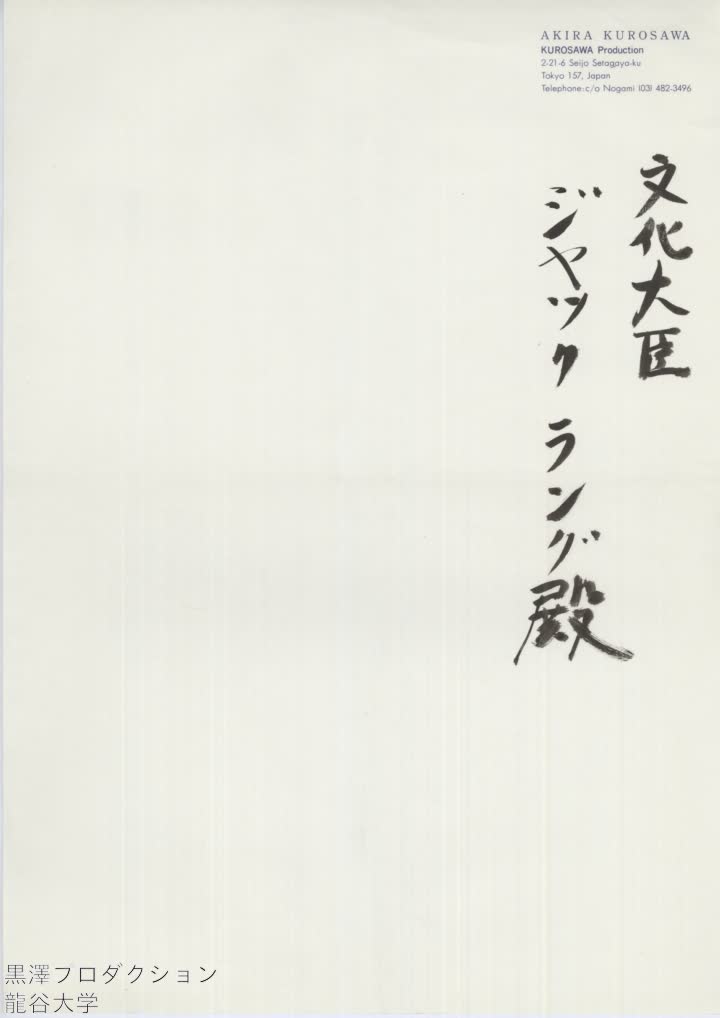 AKIRA KUROSAWA
KUROSAWA Production
2-21-6 Seijo Setagaya-ku
Tokyo 157, Japan
Telephone: c/o Nogami (03) 482-3496
文化大臣
ジヤツク ラング殿
黒澤フロダクション
龍谷大学